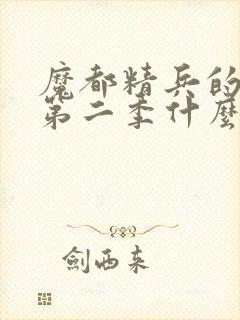 魔都精兵的
第二季什麼
劍西来